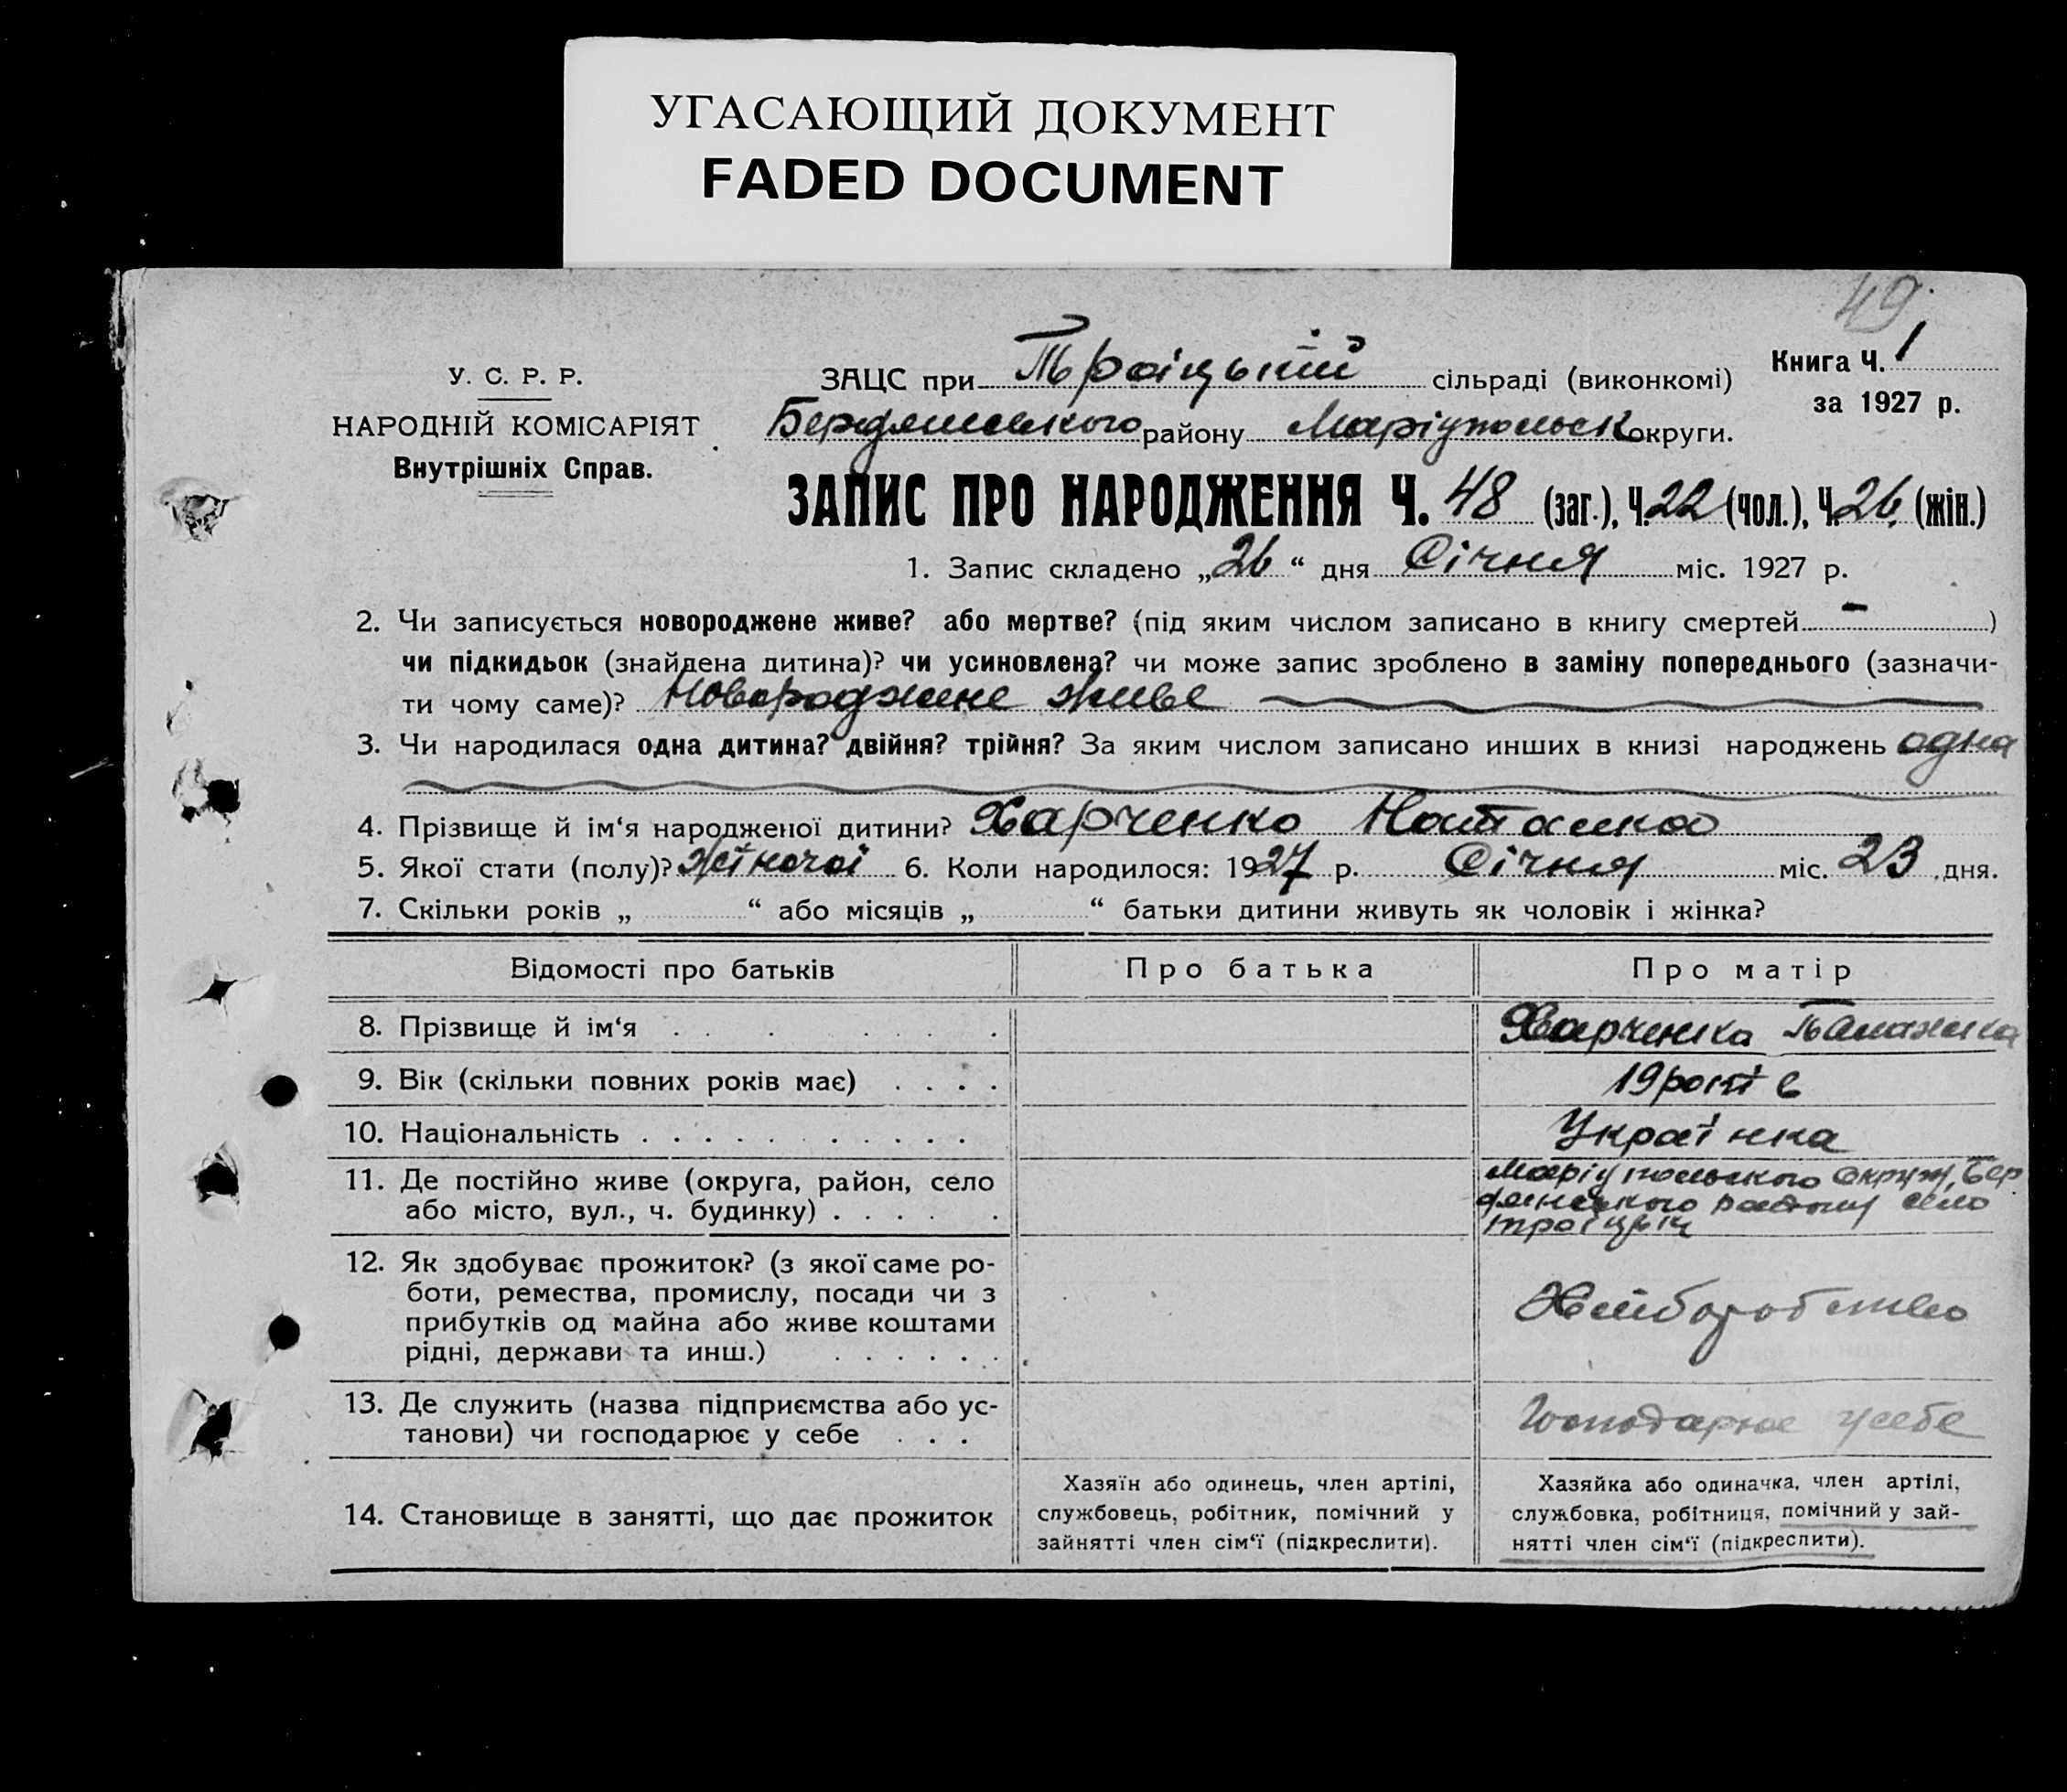 УГАСАЮЩИЙ ДОКУМЕНТ
FADED DOCUMENT
49
У. С. Р. Р.
НАРОДНІЙ КОМІСАРІЯТ
Внутрішніх Справ.
ЗАЦС при Троіцькій сільраді (виконкомі)
Бердянського району Маріупольськ округи.
Книга Ч. 1
за 1927 р.
ЗАПИС ПРО НАРОДЖЕННЯ Ч. 48 (заг.), Ч. 22 (чол.), Ч. 26. (жін.)
1. Запис складено „26“ дня Січня міс. 1927 р.
2. Чи записується новороджене живе? або мертве? (під яким числом записано в книгу смертей – )
чи підкидьок (знайдена дитина)? чи усиновлена? чи може запис зроблено в заміну попереднього (зазначи-
ти чому саме)? Новороджене живе
3. Чи народилася одна дитина? двійня? трійня? За яким числом записано инших в книзі народжень одна
4. Прізвище й ім‘я народженої дитини? Харченко
5. Якої стати (полу)? Жіночоі 6. Коли народилося: 1927 р. Січня міс. 23 дня.
7. Скільки років „ “ або місяців „ “ батьки дитини живуть як чоловік і жінка?
Відомості про батьків Про батька Про матір
8. Прізвище й ім‘я Харченко
9. Вік (скільки повних років має) 19 років
10. Національність Украінка
11. Де постійно живе (округа, район, село
або місто, вул., ч. будинку)
Маріупольського Округи, Бер
дянського району село
12. Як здобуває прожиток? (з якої саме ро-
боти, ремества, промислу, посади чи з
прибутків од майна або живе коштами
рідні, держави та инш.)
Хліборобство
13. Де служить (назва підприємства або ус-
танови) чи господарює у себе
Господарює у себе
14. Становище в занятті, що дає прожиток
Хазяїн або одинець, член артілі,
службовець, робітник, помічний у
зайнятті член сім‘ї (підкреслити).
Хазяйка або одиначка, член артілі,
службовка, робітниця, помічний у зай-
нятті член сім‘ї (підкреслити).